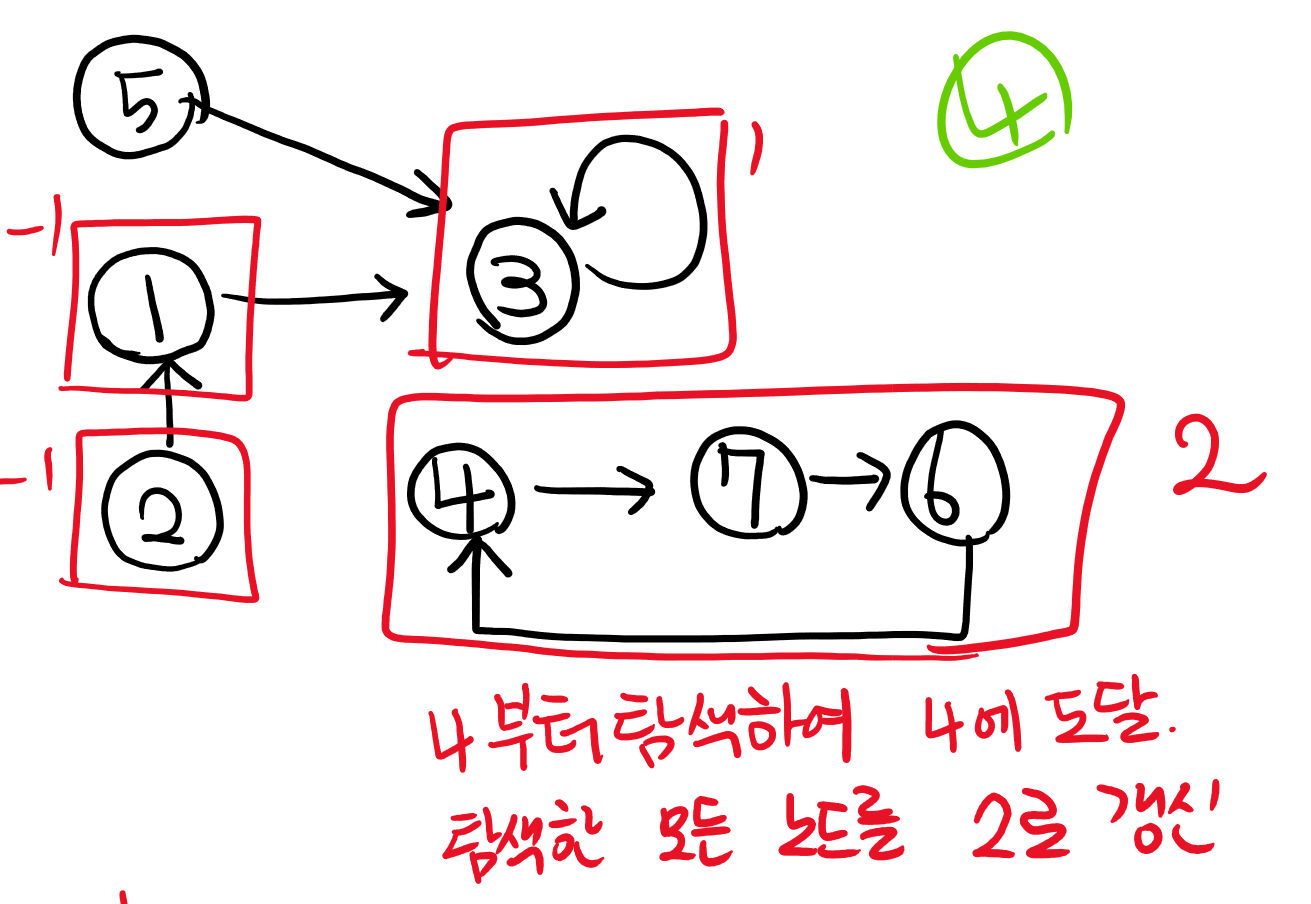 5
4
1
-1
1
3
-1
2
4 7 6
2
4부터 탐색하여 4에 도달.
탐색한 모든 노드를 2로 갱신